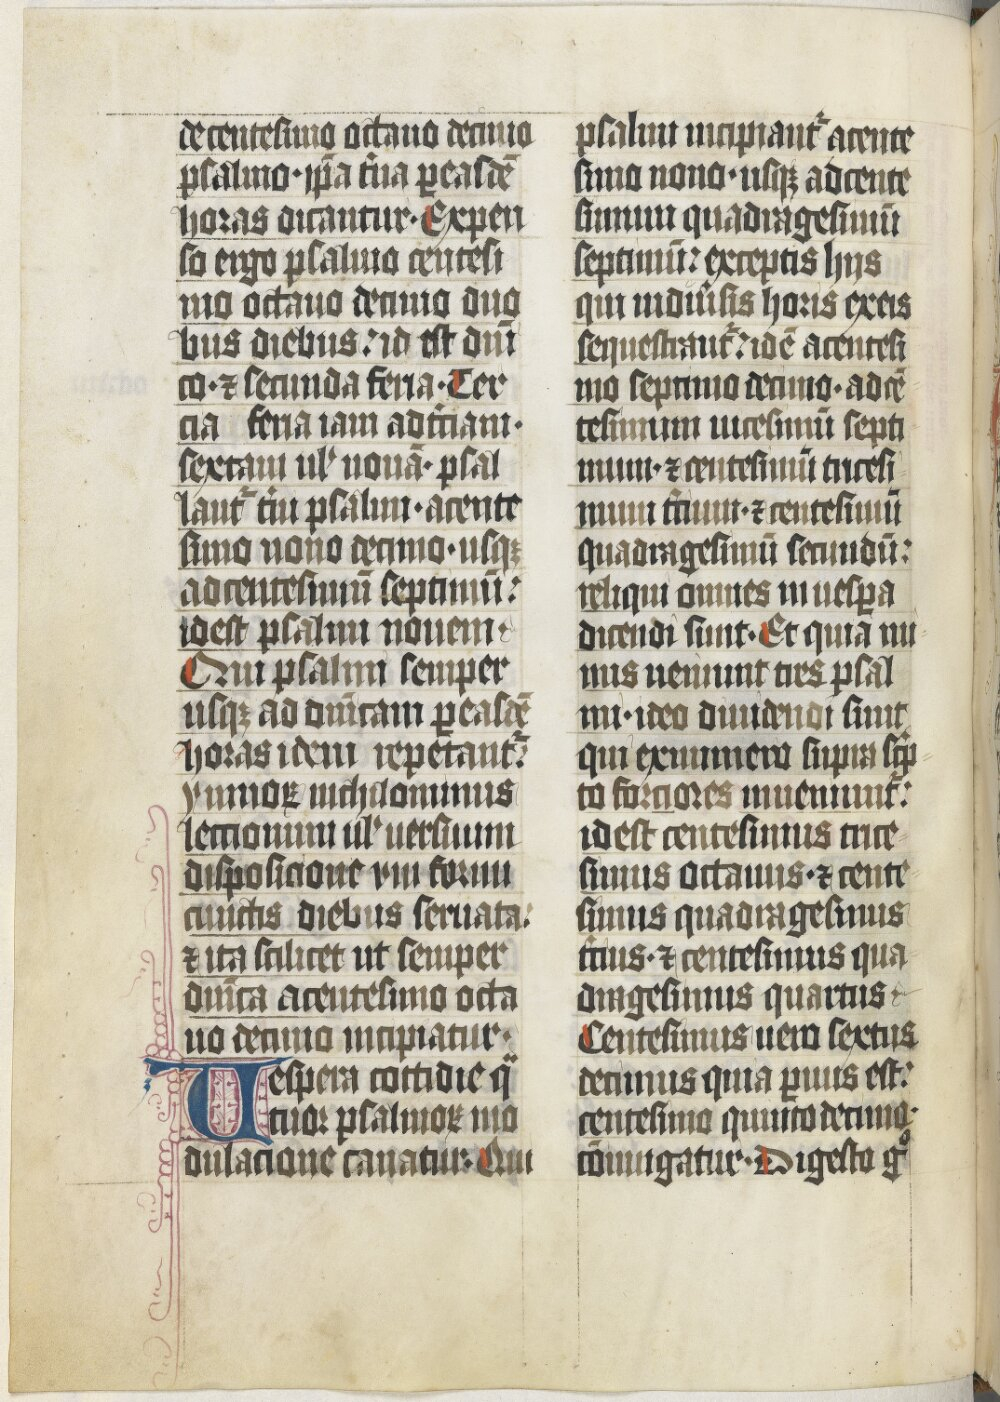 de centesimo octauo decimo
psalmo · ip̄a t̄ria ꝑ easdē
horas dicantur · Expen
so ergo psalmo centesi
mo octauo decimo duo
bus diebus : id est dn̄i
co · ⁊ secunda feria · Ter
cia feria iam ad t̄ciam ·
sextam ul' nonā · psal
lant᷑ t̄ni psalmi · a cente
simo nono decimo · usqꝫ
ad centesimū septimū :
id est psalmi nouem ·
Qui psalmi semper
usqꝫ ad dn̄icam ꝑ easdē
horas idem repetant᷑ :
ymnoꝝ nichilominus
lectionum ul' uersuum
disposicione vni formi
cunctis diebus seruata :
⁊ ita scilicet ut semper
dn̄ica a centesimo octa
uo decimo incipiatur ·
Vespera cottidie qͣ
tuor psalmoꝝ mo
dulacione canatur · Qui
psalmi incipiant᷑ a cente
simo nono · usqꝫ ad cente
simum quadragesimū
septimū : exceptis hijs
qui in diu̾sis horis ex eis
sequestrant᷑ : id ē a centesi
mo septimo decimo · ad cē
tesimum uicesimū septi
mum · ⁊ centesimū tricesi
mum t̄cium · ⁊ centesimū
quadragesimū secundū :
reliqui omnes in uesꝑa
dicendi sunt · Et quia mi
nus ueniunt tres psal
mi · ideo diuidendi sunt
qui ex numero supra sc̾p
to forciores inueniunt᷑ :
id est centesimus trice
simus octauus · ⁊ cente
simus quadragesimus
t̄cius · ⁊ centesimus qua
dragesimus quartus ·
Centesimus uero sextus
decimus quia ꝑuus est :
centesimo quinto decimo ·
cōiungatur · Digesto gͦ